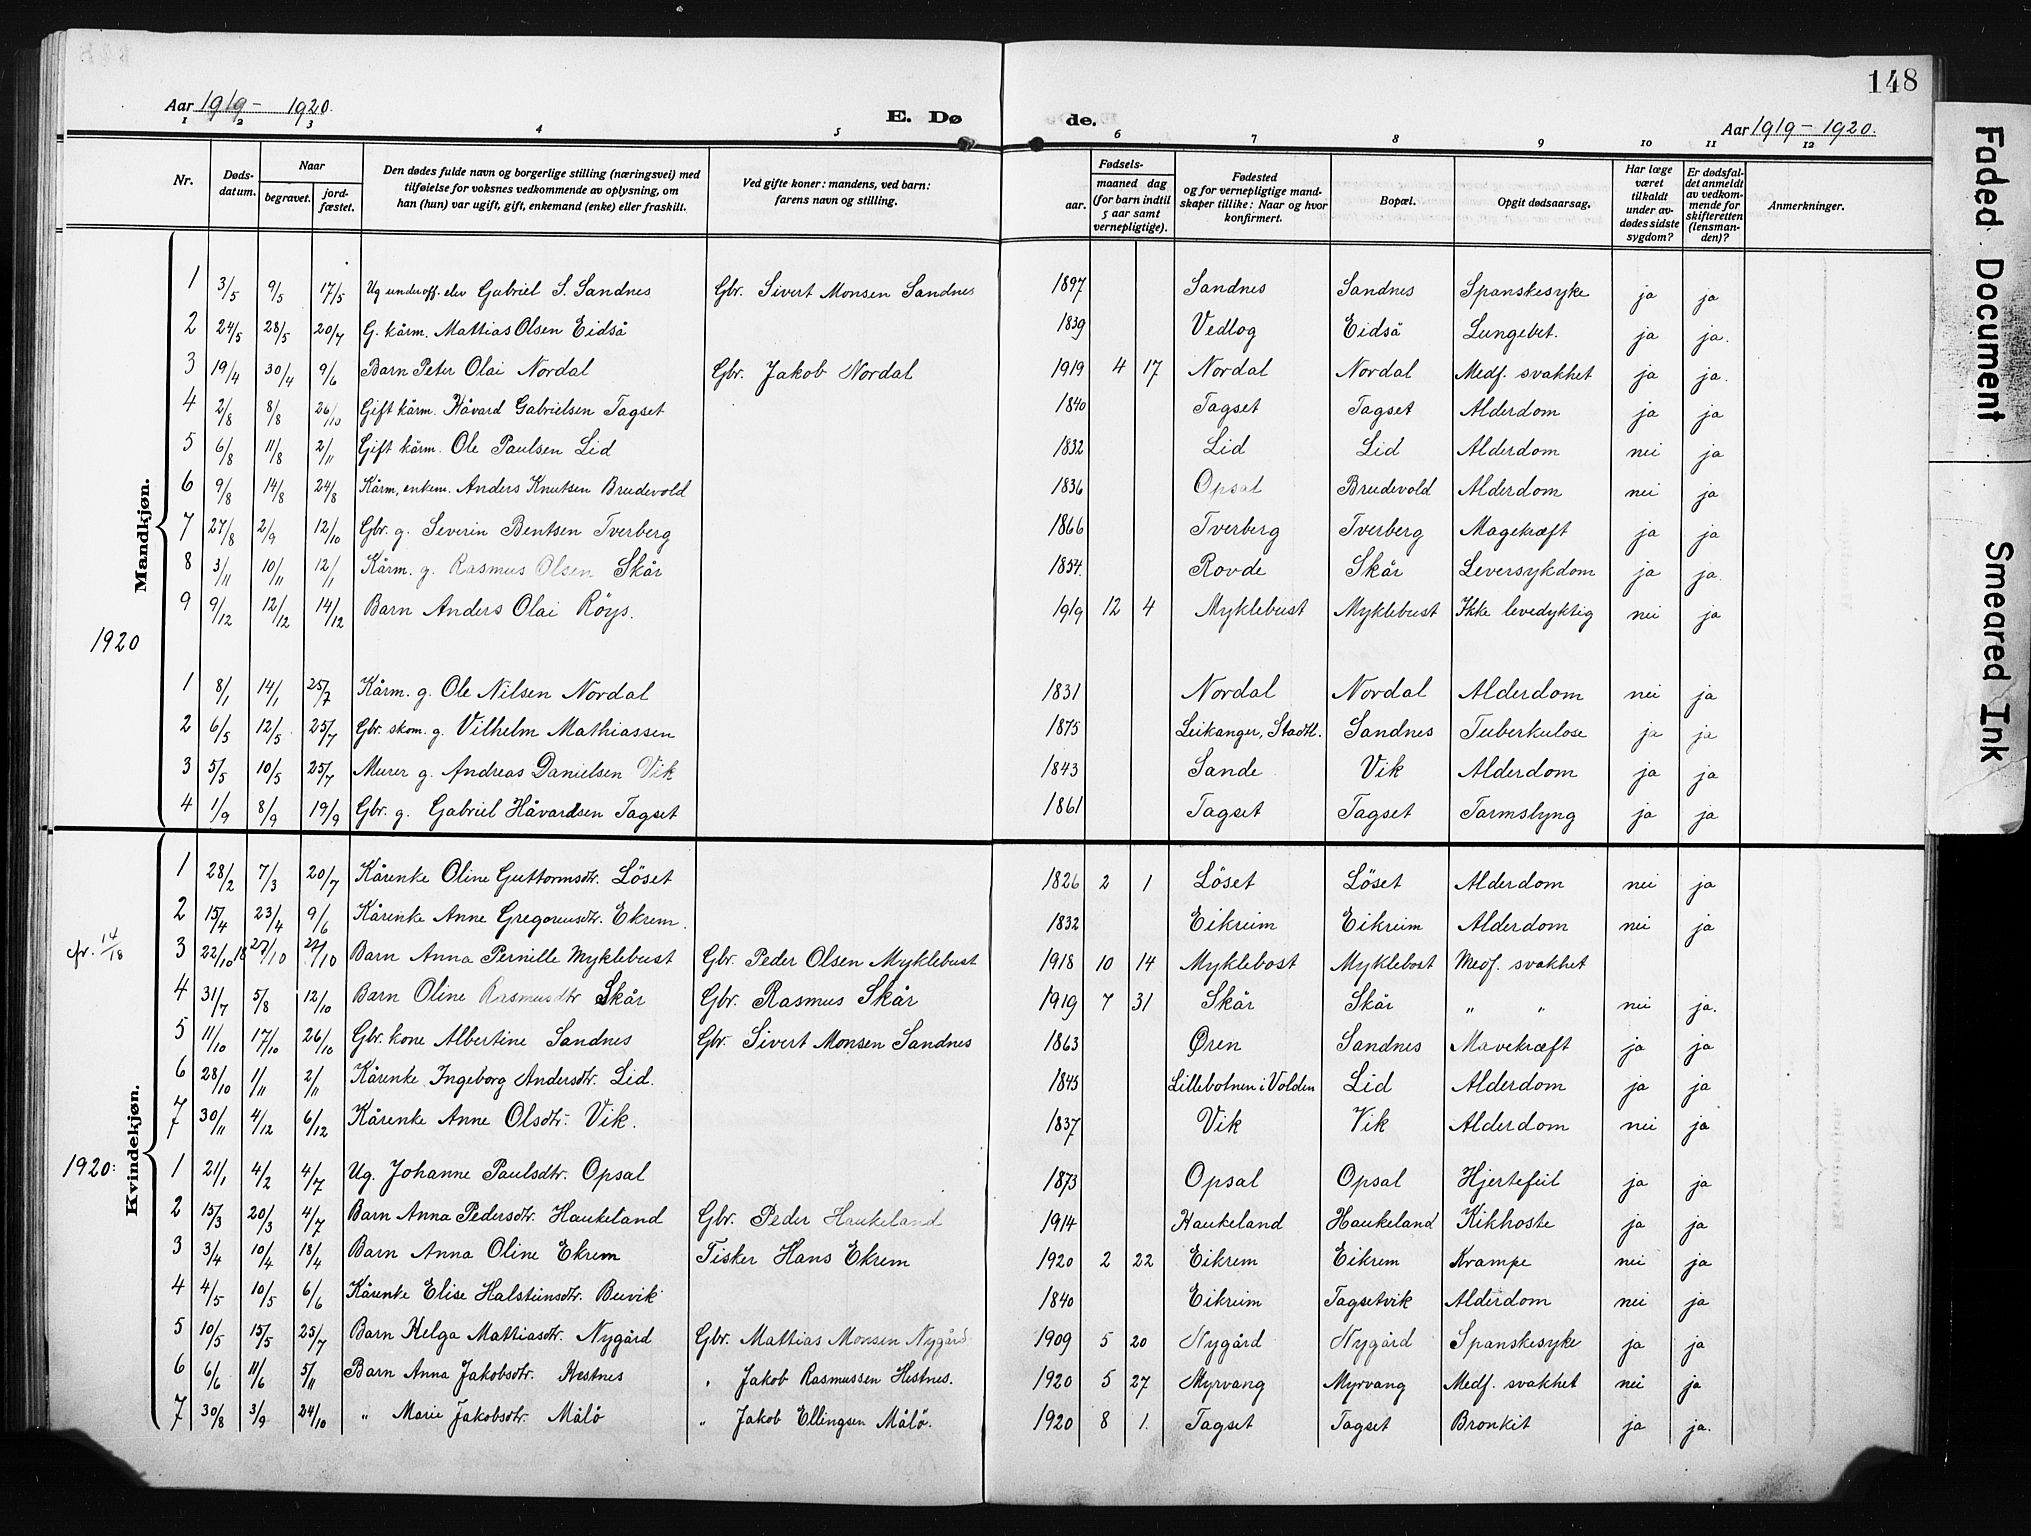 148
Aar 1919 – 1920.
E. Døde.
Aar 1919 – 1920.
1 2 3 4 5 6 7 8 9 10 11 12
Nr. | Dødsdatum. | Naar begravet. | Naar jordfæstet. | Den dødes fulde navn og borgerlige stilling (næringsvei) med tilføielse for voksnes vedkommende av oplysning, om han (hun) var ugift, gift, enkemand (enke) eller fraskilt. | Ved gifte koner: mandens, ved barn: farens navn og stilling. | Fødsels- aar. | maaned dag (for barn indtil 5 aar samt vernepligtige). | Fødested og for vernepligtige mandskaper tillike: Naar og hvor konfirmert. | Bopæl. | Opgit dødsaarsag. | Har læge været tilkaldt under avdødes sidste sygdom? | Er dødsfaldet anmeldt av vedkommende for skifteretten (lensmanden)? | Anmerkninger.
Mandkjøn.
1 3/5 9/5 17/5 Ug underoff. elev Gabriel S. Sandnes Gbr. Sivert Monsen Sandnes 1897 Sandnes Sandnes Spanskesyke ja ja
2 24/5 28/5 20/7 G. kårm. Mattias Olsen Eidså 1839 Vedlog Eidså Lungebet. ja ja.
3 19/4 30/4 9/6 Barn Peter Olai Nordal Gbr. Jakob Nordal 1919 4 17 Nordal Nordal Medf. svakhet ja ja.
4 2/8 8/8 26/10 Gift kårm. Håvard Gabrielsen Tagset 1840 Tagset Tagset Alderdom ja ja
5 6/8 11/8 2/11 Gift kårm. Ole Paulsen Lid 1832 Lid Lid Alderdom nei ja
6 9/8 14/8 24/8 Kårm, enkem. Anders Knutsen Brudevold 1836 Opsal Brudevold Alderdom nei ja
7 27/8 2/9 12/10 Gbr. g. Severin Bentsen Tverberg 1866 Tverberg Tverberg Magekræft ja ja
8 3/11 10/11 12/1 Kårm. g. Rasmus Olsen Skår 1854. Rovde Skår Leversykdom ja ja.
9 9/12 12/12 14/12 Barn Anders Olai Röys. 1919 12 4 Myklebust Myklebust Ikke levedyktig nei ja
1920
1 8/1 14/1 25/7 Kårm. g. Ole Nilsen Nordal 1831 Nordal Nordal Alderdom nei ja
2 6/5 12/5 25/7 Gbr. skom. g. Vilhelm Mathiassen 1875 Leikanger, Stadtl. Sandnes Tuberkulose ja ja
3 5/5 10/5 25/7 Murer g. Andreas Danielsen Vik 1843 Sande Vik Alderdom ja ja
4 1/9 8/9 19/9 Gbr. g. Gabriel Håvardsen Tagset 1861 Tagset Tagset Tarmslyng ja ja
Kvindekjøn.
1 28/2 7/3 20/7 Kårenke Oline Guttormsdtr. Löset 1826 2 1 Löset Löset Alderdom nei ja
2 15/4 23/4 9/6 Kårenke Anne Gregoreusdtr. Ekrem. 1832 Eikreim Eikreim Alderdom nei ja
cfr. 14/18 3 22/10 18 27/10 27/10 Barn Anna Pernille Myklebust Gbr. Peder Olsen Myklebust 1918 10 14 Myklebost Myklebost Medf. svakhet
4 31/7 5/8 12/10 Barn Oline Rasmusdtr Skår Gbr. Rasmus Skår 1919 7 31 Skår Skår " " nei ja.
5 11/10 17/10 26/10 Gbr. kone Albertine Sandnes Gbr. Sivert Monsen Sandnes 1863 Øren Sandnes Mavekræft ja ja
6 28/10 1/11 2/11 Kårenke Ingeborg Andersdtr. Lid. 1845 Lillebotnen i Volden Lid Alderdom ja ja
7 30/11 4/12 6/12 Kårenke Anne Olsdtr. Vik. 1837 Vik Vik Alderdom nei ja
1920: 1 21/1 4/2 4/7 Ug. Johanne Paulsdtr. Opsal 1873 Opsal Opsal Hjertefeil ja ja
2 15/3 20/3 4/7 Barn Anna Pedersdtr. Haukeland Gbr. Peder Haukeland 1914 Haukeland Haukeland Kikhoste ja ja
3 3/4 10/4 18/4 Barn Anna Oline Ekrem Fisker Hans Ekrem 1920 2 22 Eikrem Eikrem Krampe nei ja
4 4/5 10/5 6/6 Kårenke Elise Halsteinsdtr. Beivik 1840 Eikreim Tagsetvik Alderdom nei ja
5 10/5 15/5 25/7 Barn Helga Mattiasdtr. Nygård Gbr. Mattias Monsen Nygård 1909 5 20 Nygård Nygård Spanskesyke ja ja
6 6/6 11/6 5/11 Barn Anna Jakobsdtr. Hestnes " Jakob Rasmussen Hestnes. 1920 5 27 Myrvang Myrvang Medf. svakhet nei ja
7 30/8 3/9 24/10 " Marie Jakobsdtr. Målö " Jakob Ellingsen Målö. 1920 8 1. Tagset Tagset Bronkit ja ja.
Faded Document
Smeared Ink